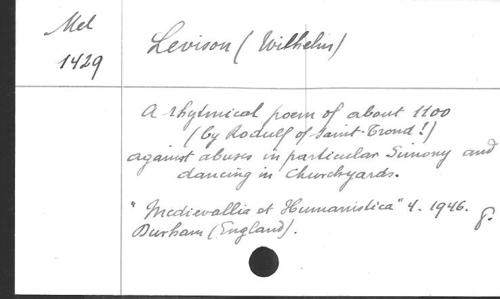 Mel
1429
Levison (Wilhelm)
A rhytmical poem of about 1100
(by Rodulf of Saint-Trond!)
against abuses in particular Simony and
dancing in Churchyards.
"Medievallia et Humanistica" 4. 1946.
Durham (England). 8.